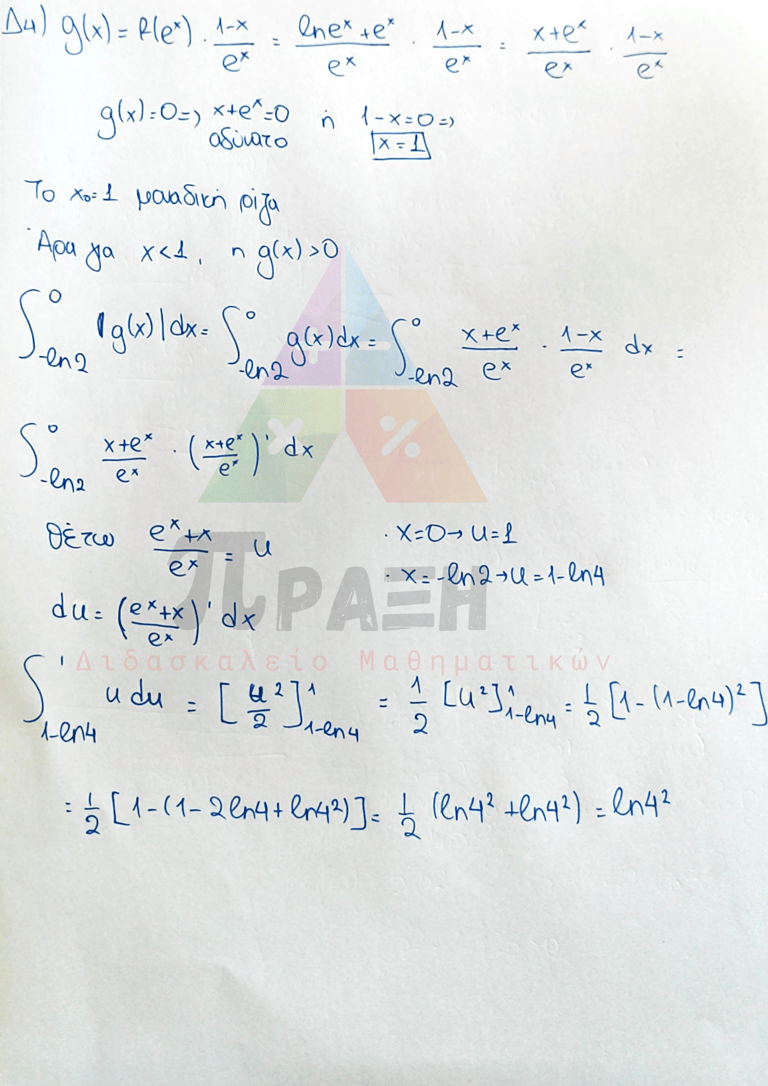 Δ4) g(x) = f(e^x) · (1-x)/e^x = (ln e^x + e^x)/e^x · (1-x)/e^x = (x+e^x)/e^x · (1-x)/e^x
g(x)=0 => x+e^x=0 ή 1-x=0 =>
αδύνατο x=1
Το x₀=1 μοναδική ρίζα
Άρα για x<1, η g(x)>0
∫_{-ln2}^{0} |g(x)|dx = ∫_{-ln2}^{0} g(x)dx = ∫_{-ln2}^{0} (x+e^x)/e^x · (1-x)/e^x dx =
∫_{-ln2}^{0} (x+e^x)/e^x · ((x+e^x)/e^x)' dx
θέτω (e^x+x)/e^x = u · x=0 → u=1
· x=-ln2 → u=1-ln4
du = ((e^x+x)/e^x)' dx
ΠΡΑΞΗ
Διδασκαλείο Μαθηματικών
∫_{1-ln4}^{1} u du = [u²/2]_{1-ln4}^{1} = 1/2 [u²]_{1-ln4}^{1} = 1/2 [1-(1-ln4)²]
= 1/2 [1-(1-2ln4+ln4²)] = 1/2 (ln4²+ln4²) = ln4²